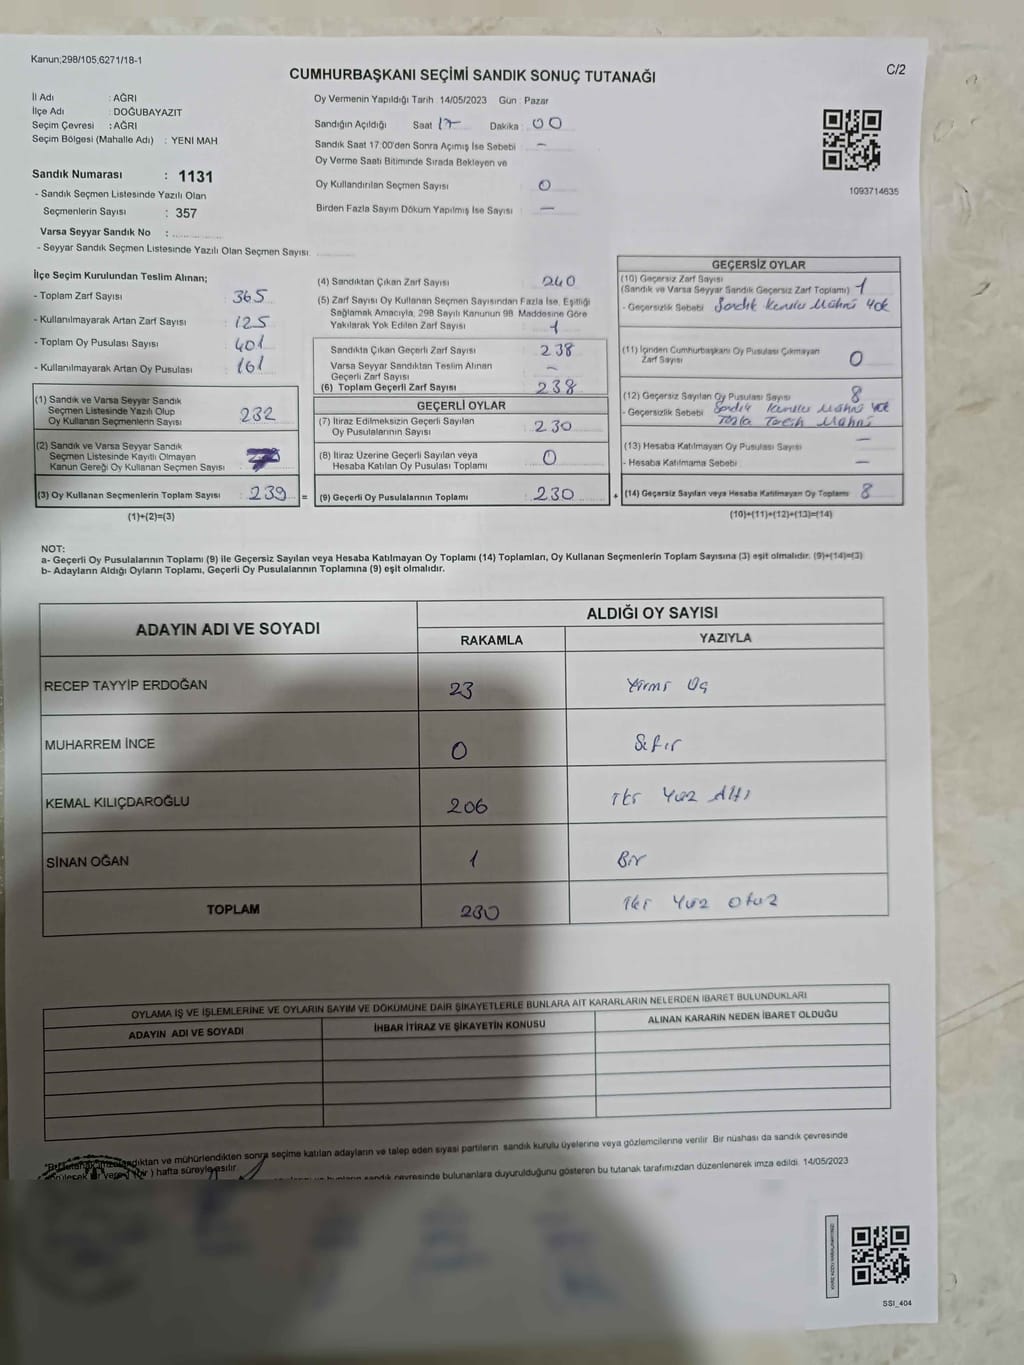 Kanun;298/105;6271/18-1
C/2
CUMHURBAŞKANI SEÇİMİ SANDIK SONUÇ TUTANAĞI
İl Adı : AĞRI
İlçe Adı : DOĞUBAYAZIT
Seçim Çevresi : AĞRI
Seçim Bölgesi (Mahalle Adı) : YENI MAH
Sandık Numarası : 1131
- Sandık Seçmen Listesinde Yazılı Olan
Seçmenlerin Sayısı : 357
Varsa Seyyar Sandık No :
- Seyyar Sandık Seçmen Listesinde Yazılı Olan Seçmen Sayısı:
Oy Vermenin Yapıldığı Tarih : 14/05/2023 Gün : Pazar
Sandığın Açıldığı Saat 17 Dakika : 00
Sandık Saat 17:00'den Sonra Açımış İse Sebebi : -
Oy Verme Saati Bitiminde Sırada Bekleyen ve
Oy Kullandırılan Seçmen Sayısı : 0
Birden Fazla Sayım Döküm Yapılmış İse Sayısı : -
1093714635
İlçe Seçim Kurulundan Teslim Alınan;
- Toplam Zarf Sayısı : 365
- Kullanılmayarak Artan Zarf Sayısı : 125
- Toplam Oy Pusulası Sayısı : 401
- Kullanılmayarak Artan Oy Pusulası : 161
(1) Sandık ve Varsa Seyyar Sandık
Seçmen Listesinde Yazılı Olup
Oy Kullanan Seçmenlerin Sayısı : 232
(2) Sandık ve Varsa Seyyar Sandık
Seçmen Listesinde Kayıtlı Olmayan
Kanun Gereği Oy Kullanan Seçmen Sayısı : 7
(3) Oy Kullanan Seçmenlerin Toplam Sayısı : 239 =
(1)+(2)=(3)
(4) Sandıktan Çıkan Zarf Sayısı : 240
(5) Zarf Sayısı Oy Kullanan Seçmen Sayısından Fazla İse, Eşitliği
Sağlamak Amacıyla, 298 Sayılı Kanunun 98. Maddesine Göre
Yakılarak Yok Edilen Zarf Sayısı : 1
Sandıkta Çıkan Geçerli Zarf Sayısı : 238
Varsa Seyyar Sandıktan Teslim Alınan
Geçerli Zarf Sayısı : -
(6) Toplam Geçerli Zarf Sayısı : 238
GEÇERLİ OYLAR
(7) İtiraz Edilmeksizin Geçerli Sayılan
Oy Pusulalarının Sayısı : 230
(8) İtiraz Üzerine Geçerli Sayılan veya
Hesaba Katılan Oy Pusulası Toplamı : 0
(9) Geçerli Oy Pusulalarının Toplamı : 230 +
GEÇERSİZ OYLAR
(10) Geçersiz Zarf Sayısı
(Sandık ve Varsa Seyyar Sandık Geçersiz Zarf Toplamı) : 1
- Geçersizlik Sebebi : Sandık Kurulu Mührü Yok
(11) İçinden Cumhurbaşkanı Oy Pusulası Çıkmayan
Zarf Sayısı : 0
(12) Geçersiz Sayılan Oy Pusulası Sayısı : 8
- Geçersizlik Sebebi : Sandık Kurulu Mührü Yok
Fazla Tercih Mührü
(13) Hesaba Katılmayan Oy Pusulası Sayısı : -
- Hesaba Katılmama Sebebi : -
(14) Geçersiz Sayılan veya Hesaba Katılmayan Oy Toplamı : 8
(10)+(11)+(12)+(13)=(14)
NOT:
a- Geçerli Oy Pusulalarının Toplamı (9) ile Geçersiz Sayılan veya Hesaba Katılmayan Oy Toplamı (14) Toplamları, Oy Kullanan Seçmenlerin Toplam Sayısına (3) eşit olmalıdır. (9)+(14)=(3)
b- Adayların Aldığı Oyların Toplamı, Geçerli Oy Pusulalarının Toplamına (9) eşit olmalıdır.
ADAYIN ADI VE SOYADI
ALDIĞI OY SAYISI
RAKAMLA YAZIYLA
RECEP TAYYİP ERDOĞAN 23 Yirmi Üç
MUHARREM İNCE 0 Sıfır
KEMAL KILIÇDAROĞLU 206 İki Yüz Altı
SİNAN OĞAN 1 Bir
TOPLAM 230 İki Yüz Otuz
OYLAMA İŞ VE İŞLEMLERİNE VE OYLARIN SAYIM VE DÖKÜMÜNE DAİR ŞİKAYETLERLE BUNLARA AİT KARARLARIN NELERDEN İBARET BULUNDUKLARI
ADAYIN ADI VE SOYADI İHBAR İTİRAZ VE ŞİKAYETİN KONUSU ALINAN KARARIN NEDEN İBARET OLDUĞU
mühürlendikten sonra seçime katılan adayların ve talep eden siyasi partilerin sandık kurulu üyelerine veya gözlemcilerine verilir. Bir nüshası da sandık çevresinde
hafta süreyle asılır.
sandık çevresinde bulunanlara duyurulduğunu gösteren bu tutanak tarafımızdan düzenlenerek imza edildi. 14/05/2023
SSI_404